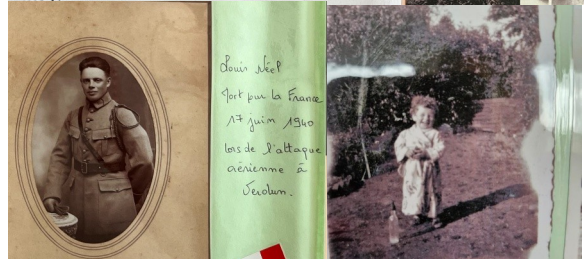 Louis Néel
Mort pour la France
17 juin 1940
lors de l'attaque
aérienne à
Verdun.